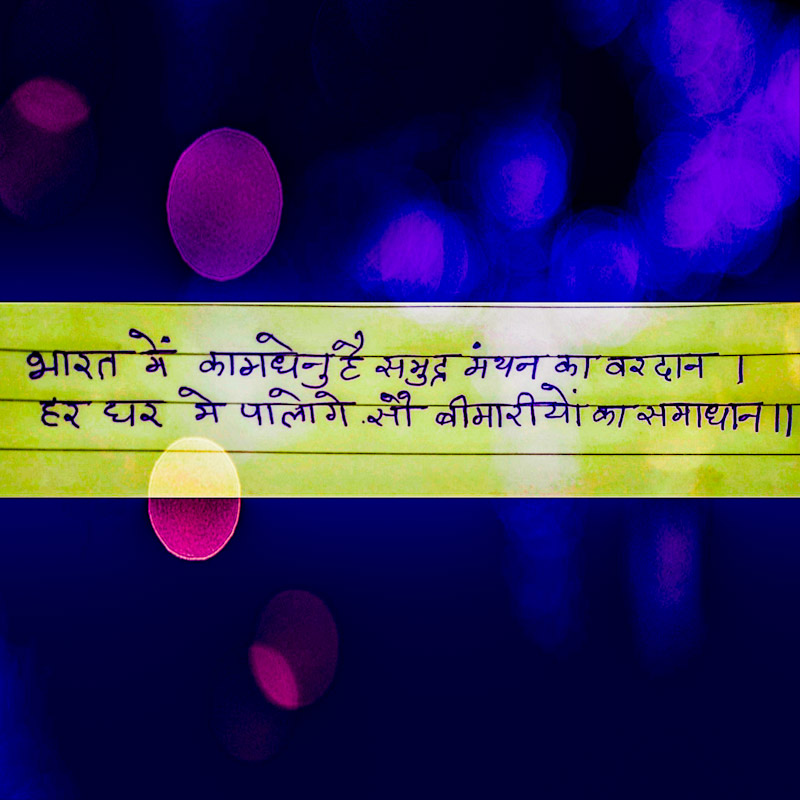 भारत में कामधेनु है समुद्र मंथन का वरदान ।
हर घर मे पालोगे सौ बीमारीयों का समाधान ॥